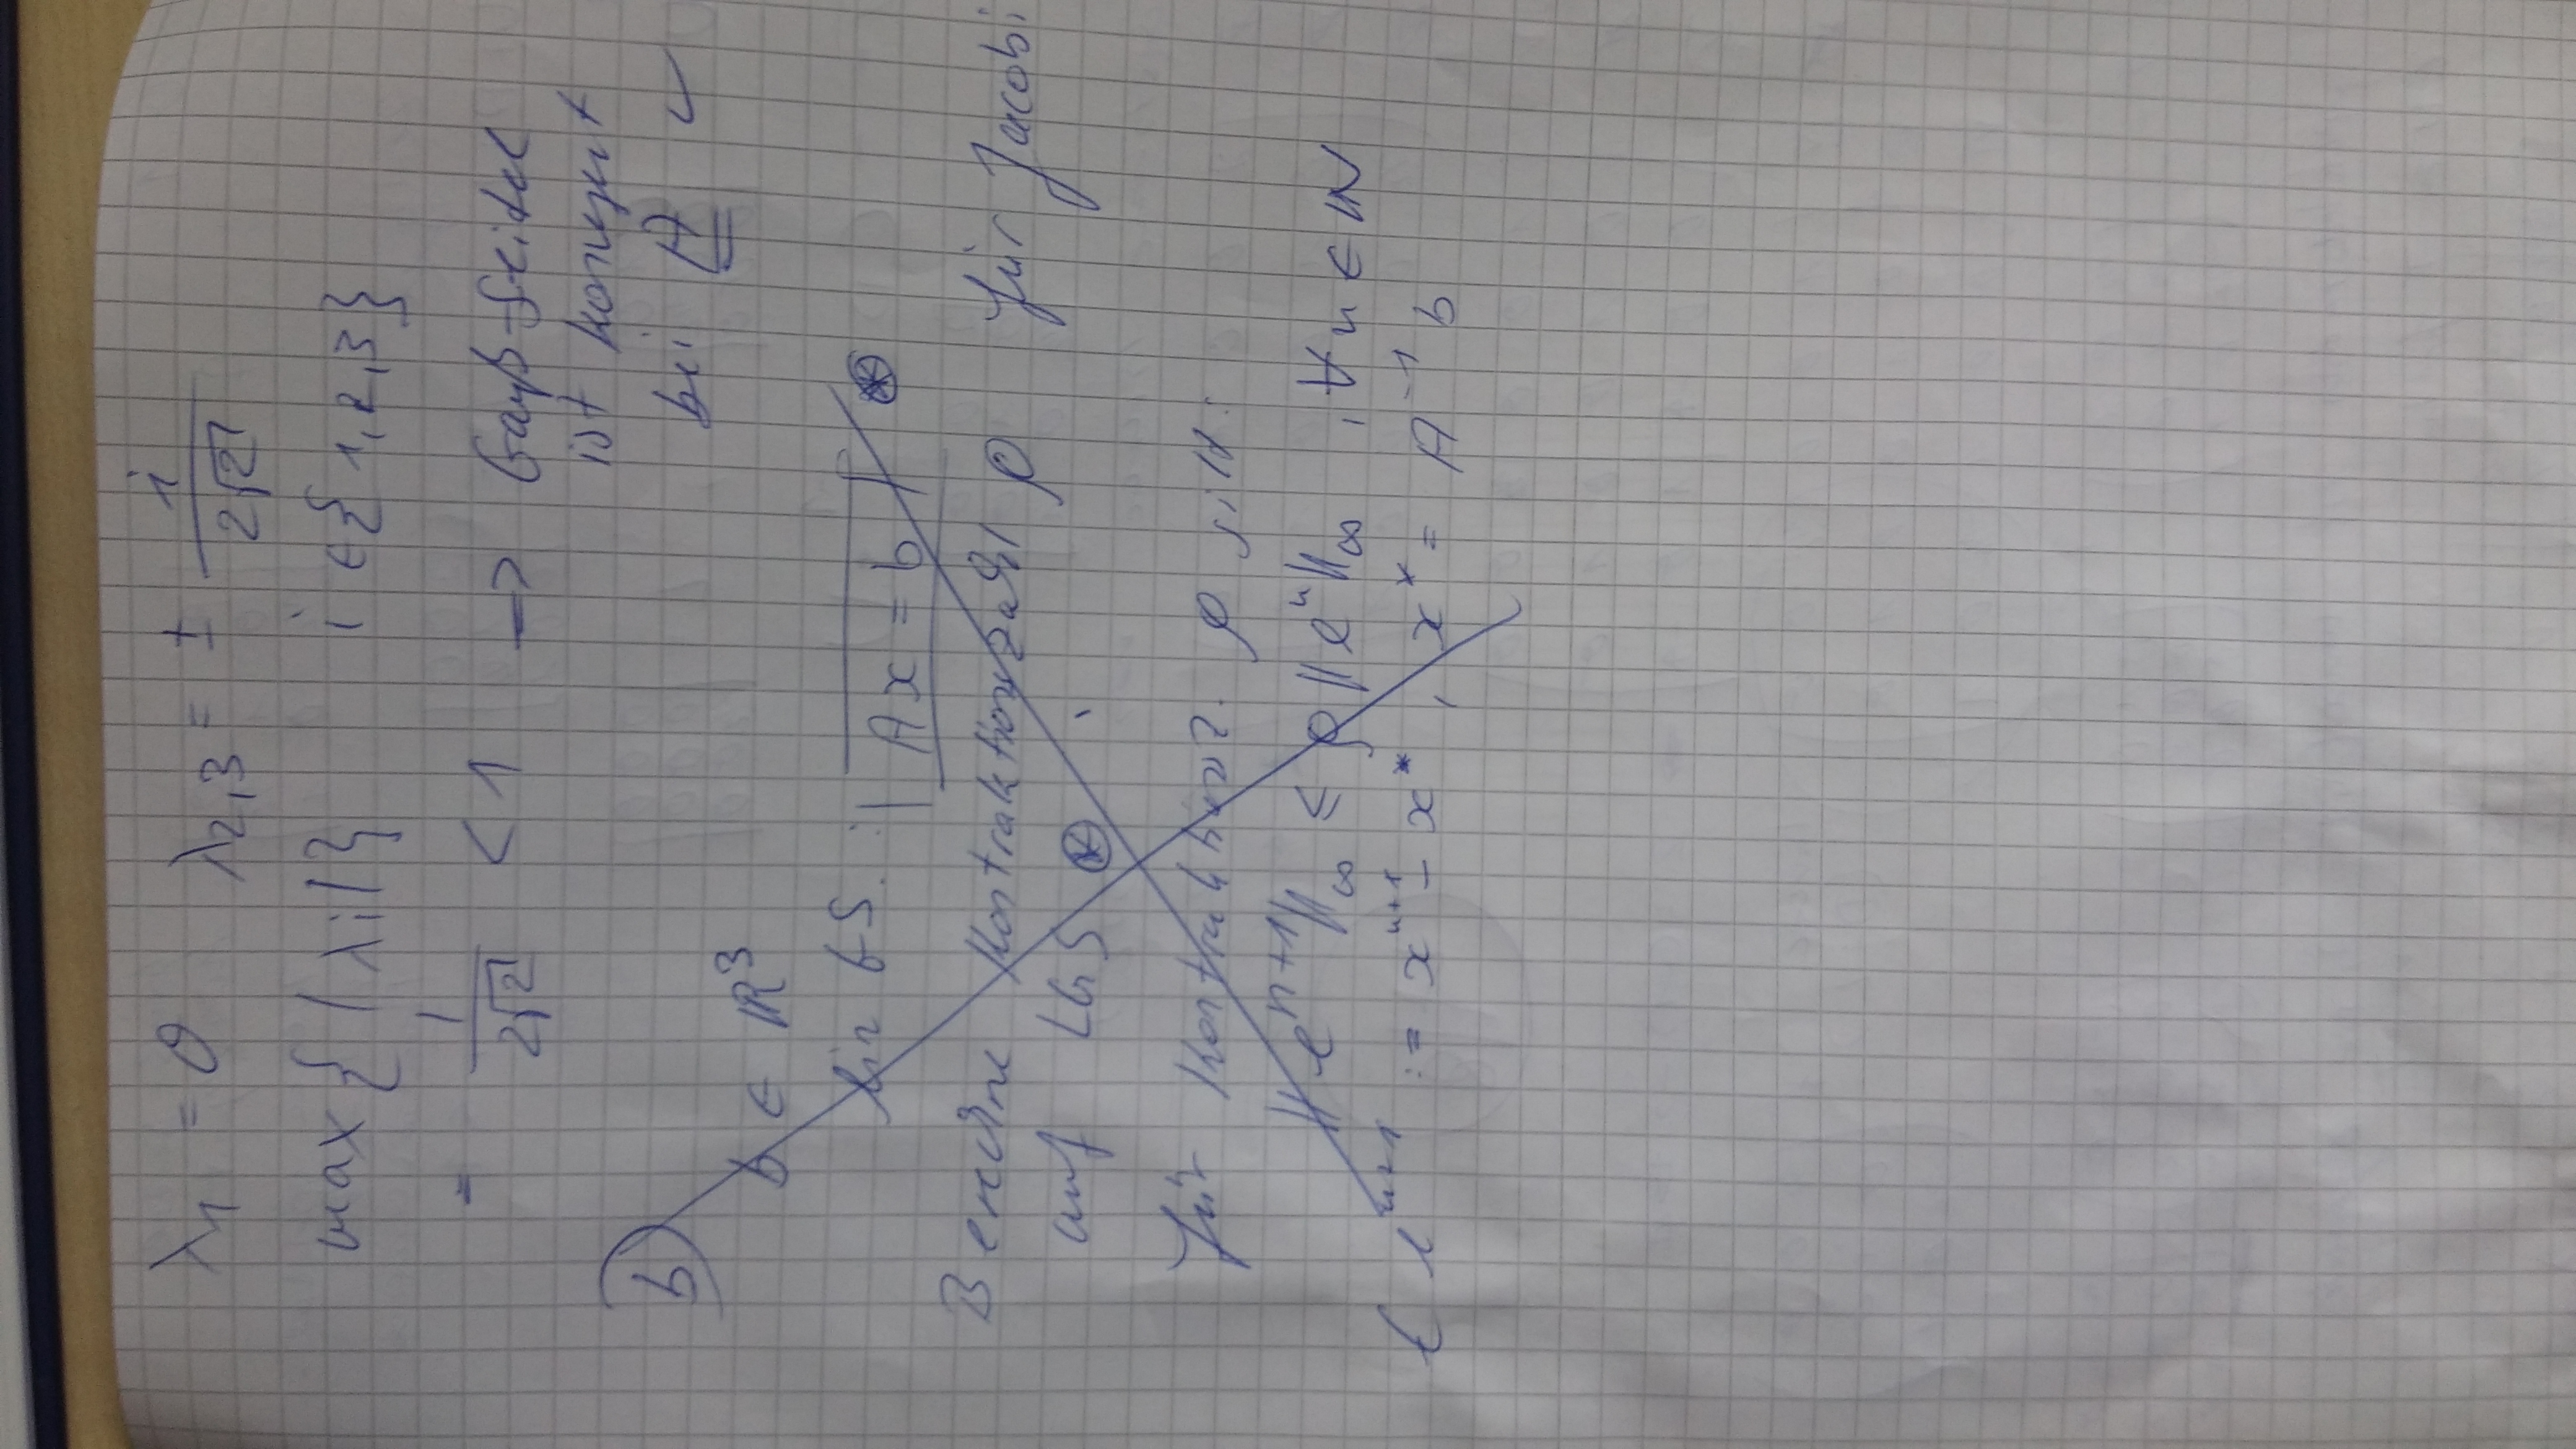 λ₁ = 0 λ₂,₃ = ± i/(2√2)
max{|λi|} i ∈ {1,2,3}
= 1/(2√2) < 1 → Gauß-Seidel
ist konvergent
bei A ✓
b)
b ∈ ℝ³
lin GS.: Ax = b ⊛
Berechne Kontraktionszahl ρ für Jacobi
auf LGS ⊛.
für Kontraktionsz. ρ gilt:
‖eⁿ⁺¹‖∞ ≤ ρ‖eⁿ‖∞, ∀n ∈ ℕ
eⁿ⁺¹ := xⁿ⁺¹ - x*, x* = A⁻¹b